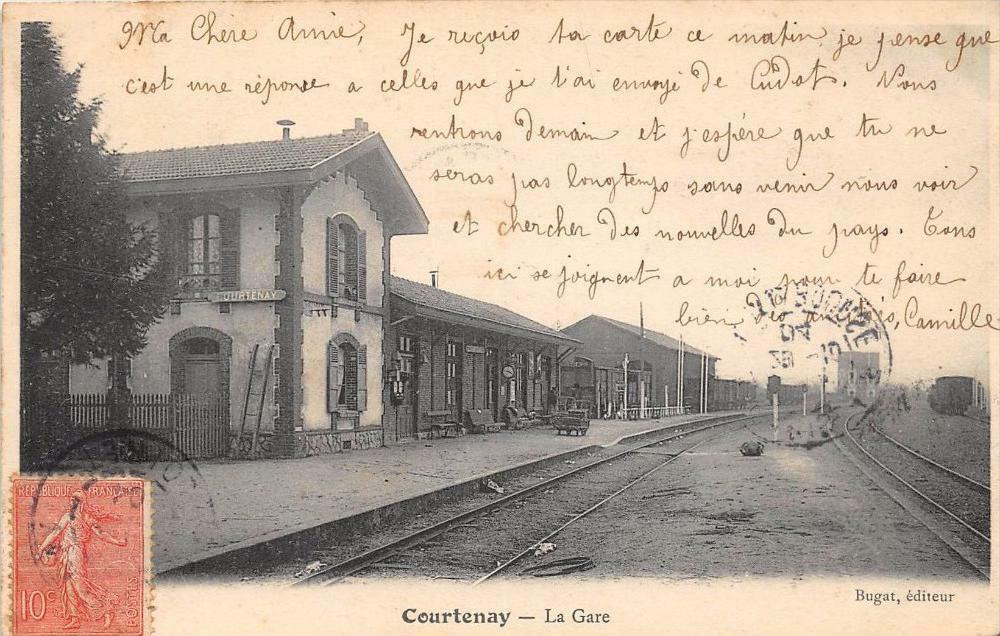 Ma Chère Amie, Je reçois ta carte ce matin je pense que
c'est une réponse a celles que je t'ai envoyé de Cudot. Nous
rentrons demain et j'espère que tu ne
seras pas longtemps sans venir nous voir
et chercher des nouvelles du pays. Tous
ici se joignent a moi pour te faire
bien des amitiés, Camille
COURTENAY
REPUBLIQUE FRANÇAISE
10c
POSTES
Bugat, éditeur
Courtenay — La Gare